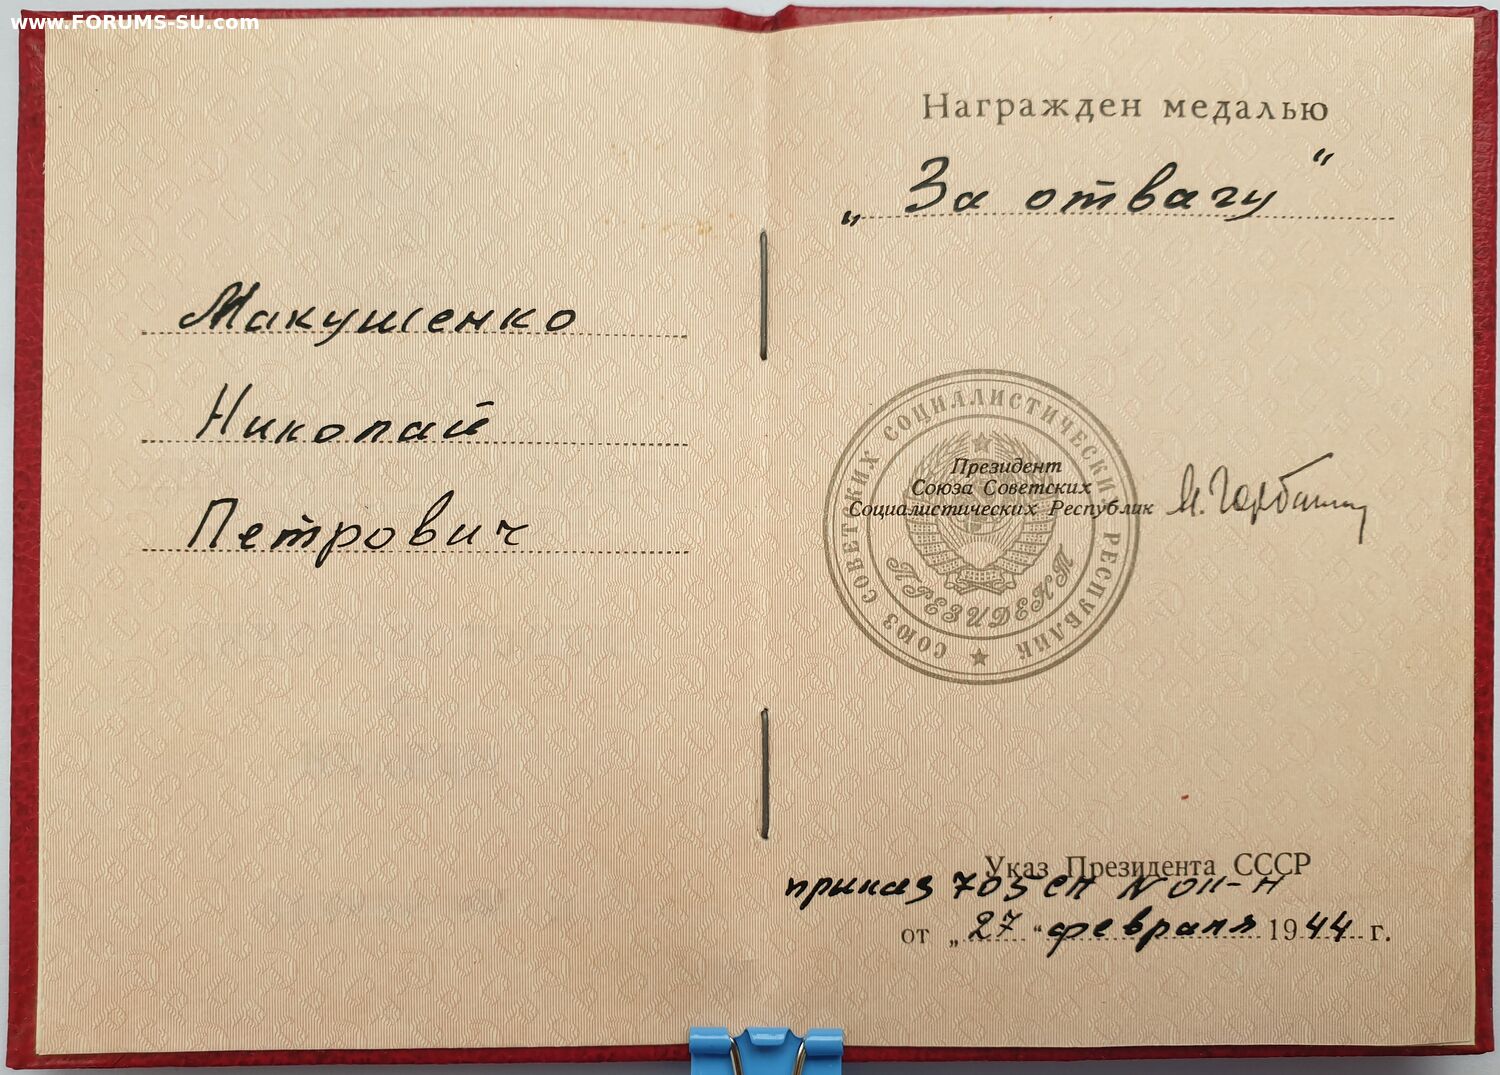 www.FORUMS-SU.com
Макушенко
Николай
Петрович
Награжден медалью
„За отвагу“
СОЮЗ СОВЕТСКИХ СОЦИАЛИСТИЧЕСКИХ РЕСПУБЛИК
ПРЕЗИДЕНТ
Президент
Союза Советских
Социалистических Республик
М. Горбачев
Указ Президента СССР
приказ 705 сп N 011-н
от „27“ февраля 1944 г.